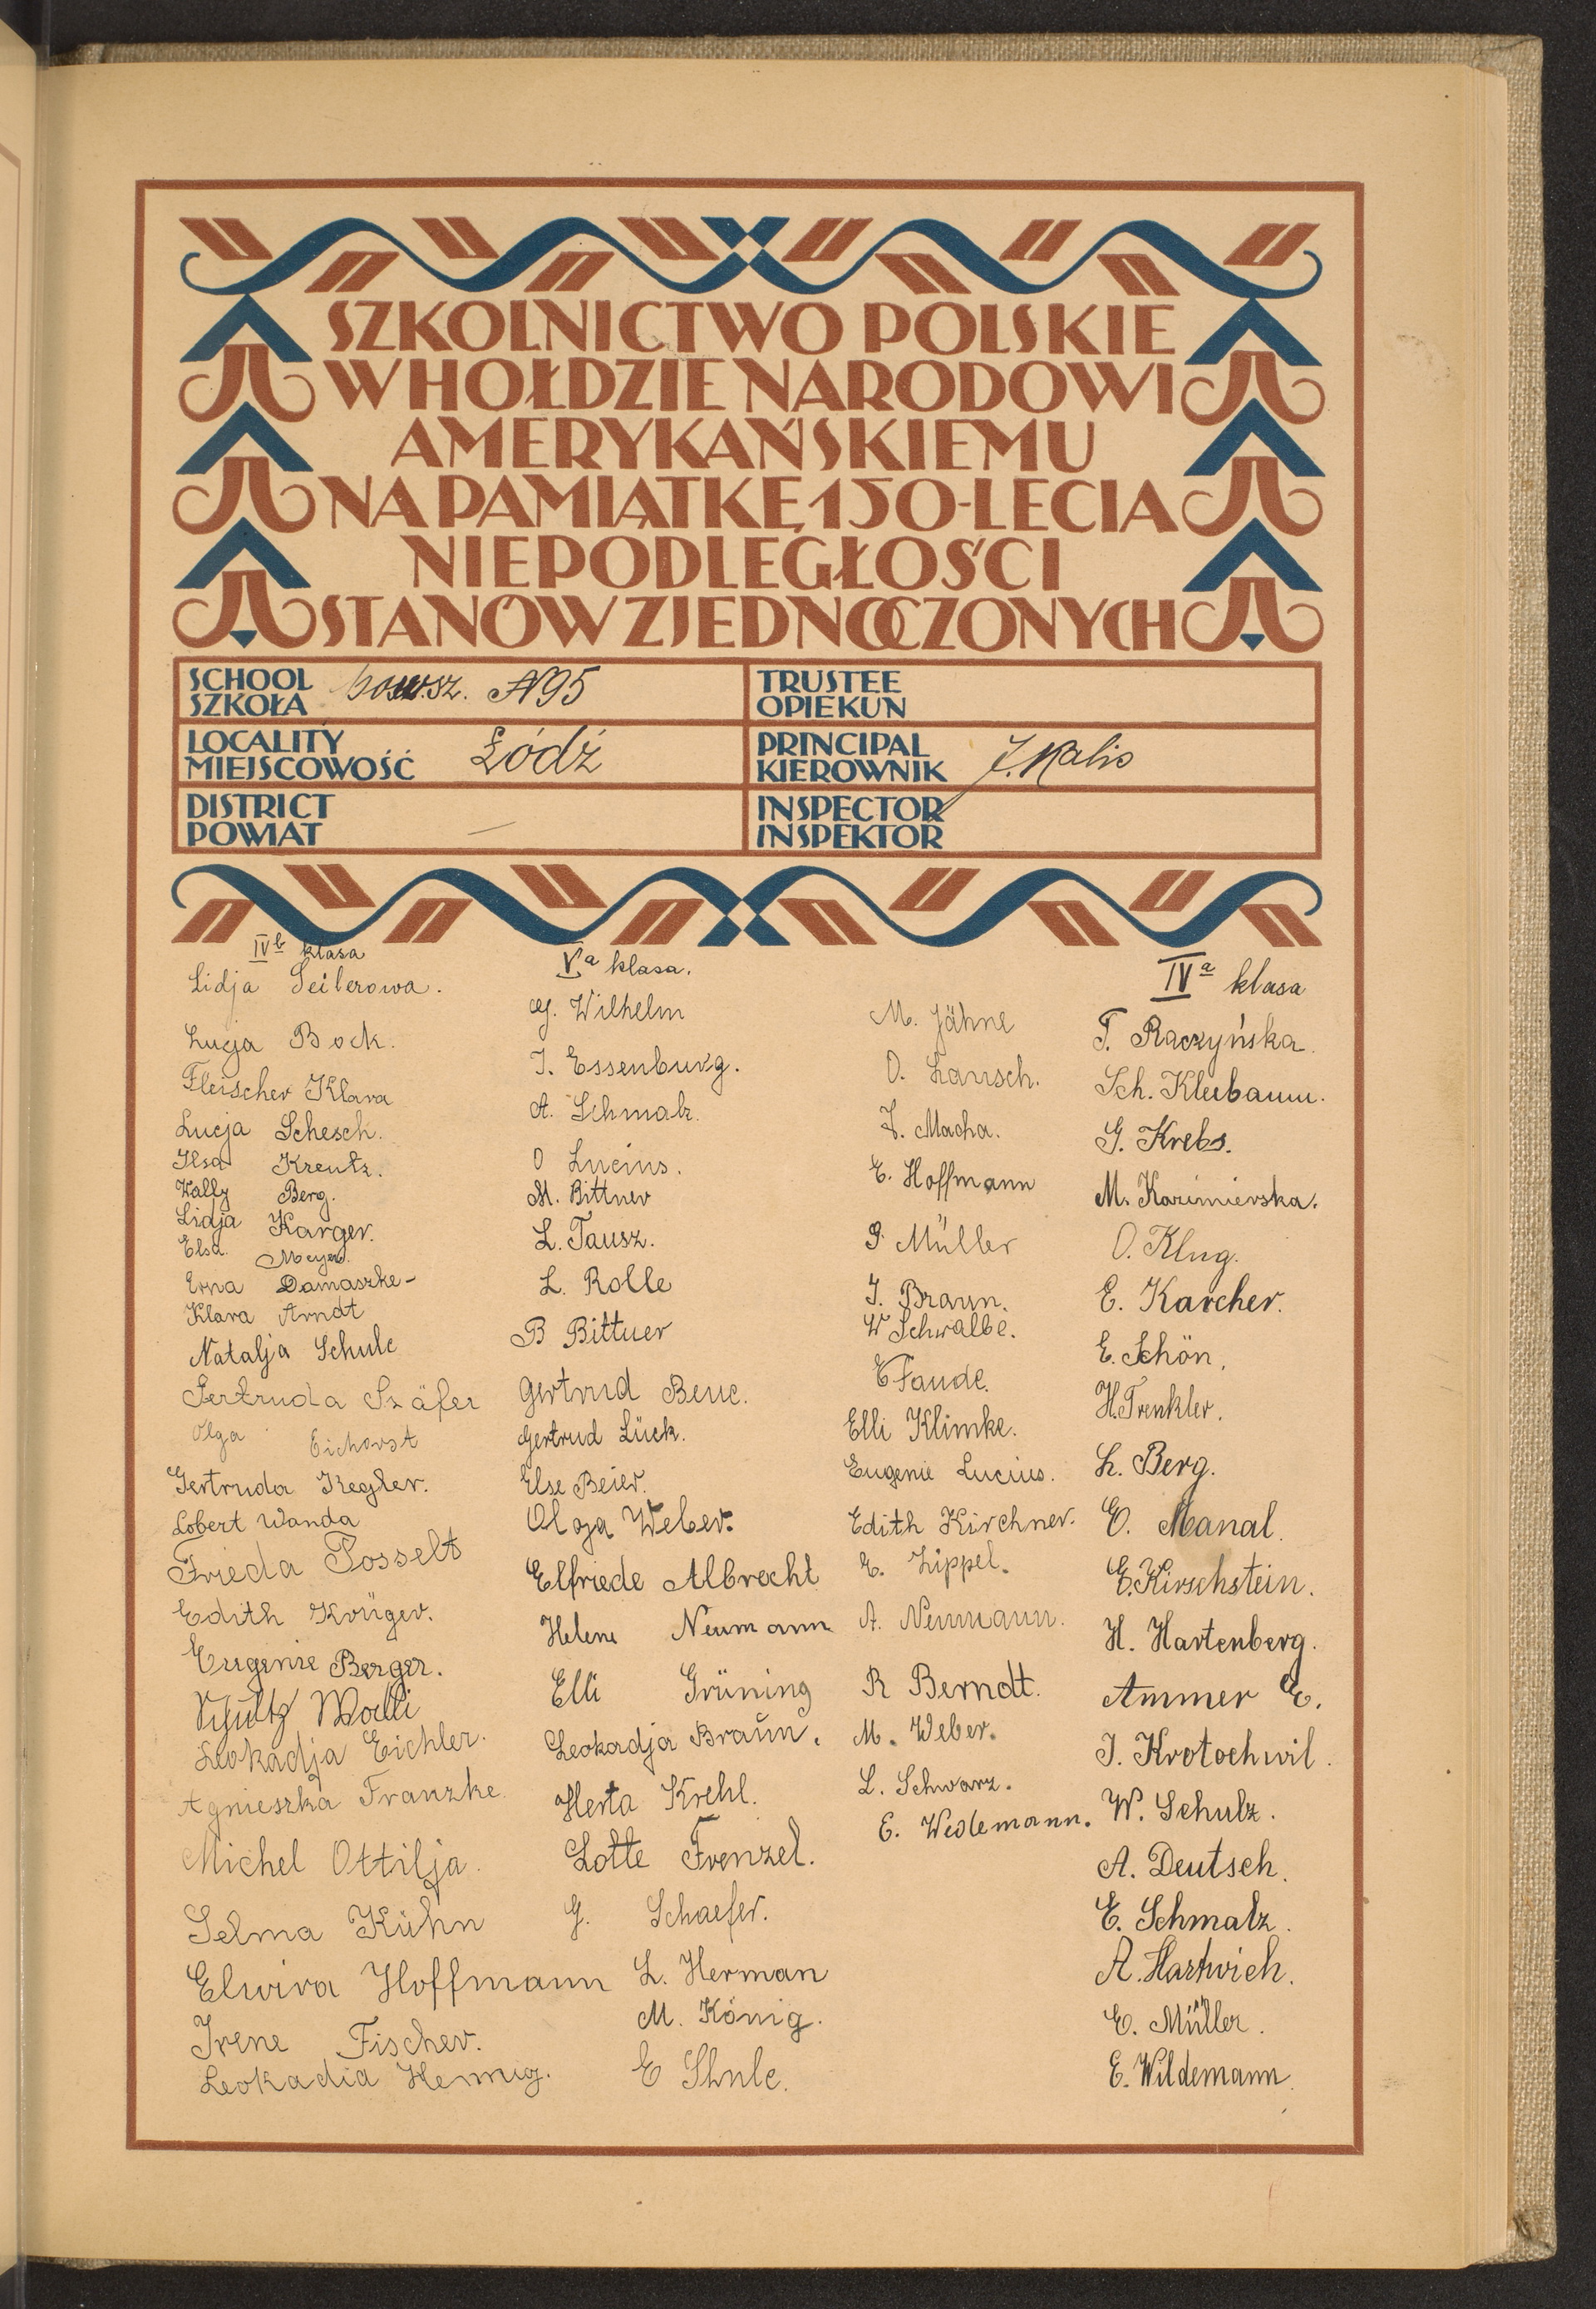 SZKOLNICTWO POLSKIE
W HOŁDZIE NARODOWI
AMERYKAŃSKIEMU
NA PAMIĄTKĘ 150-LECIA
NIEPODLEGŁOŚCI
STANÓW ZJEDNOCZONYCH
SCHOOL
SZKOŁA
powsz. N95
TRUSTEE
OPIEKUN
LOCALITY
MIEJSCOWOŚĆ
Łódź
PRINCIPAL
KIEROWNIK
J. Kalis
DISTRICT
POWIAT
—
INSPECTOR
INSPEKTOR
IVb klasa
Lidja Seilerowa.
Lucja Bock.
Fleischer Klara
Lucja Schesch.
Ilsa Kreutz.
Wally Berg.
Lidja Karger.
Elsa Meyer.
Erna Damaszke-
Klara Arndt
Natalja Schulc
Gertruda Szäfer
Olga Eichorst
Gertruda Kegler.
Lobert Wanda
Frieda Posselt
Edith Krüger.
Eugenie Berger.
Schultz Walli
Leokadja Eichler.
Agnieszka Franzke.
Michel Ottilja.
Selma Kühn
Elwira Hoffmann
Irene Fischer.
Leokadia Hennig.
Va klasa.
G. Wilhelm
I. Essenburg.
A. Schmalz.
O Lucius.
M. Bittner
L. Tausz.
L. Rolle
B Bittner
Gertrud Beue.
Gertrud Lück.
Else Beier.
Olga Weber.
Elfriede Albrecht
Helene Neumann
Elli Grüning
Leokadja Braun.
Herta Krehl.
Lotte Frenzel.
G. Schaefer.
L. Herman
M. König.
E Shulc.
M. Jähne
O. Lausch.
F. Macha.
E. Hoffmann
G. Müller
I. Braun.
W Schwalbe.
E Faude.
Elli Klimke.
Eugenie Lucius.
Edith Kirchner.
E. Zippel.
A. Neumann.
R Berndt.
M. Weber.
L. Schwarz.
E. Wedemann.
IVa klasa
F. Raczyńska.
Sch. Kleebaum.
G. Krebs.
M. Kazimierska.
O. Klug.
E. Karcher.
E. Schön.
H. Trenkler.
L. Berg.
E. Manal.
E. Kirschstein.
H. Hartenberg.
Ammer E.
I. Krotochwil.
W. Schulz.
A. Deutsch.
E. Schmalz.
A. Hartwich.
E. Müller.
E. Wildemann.